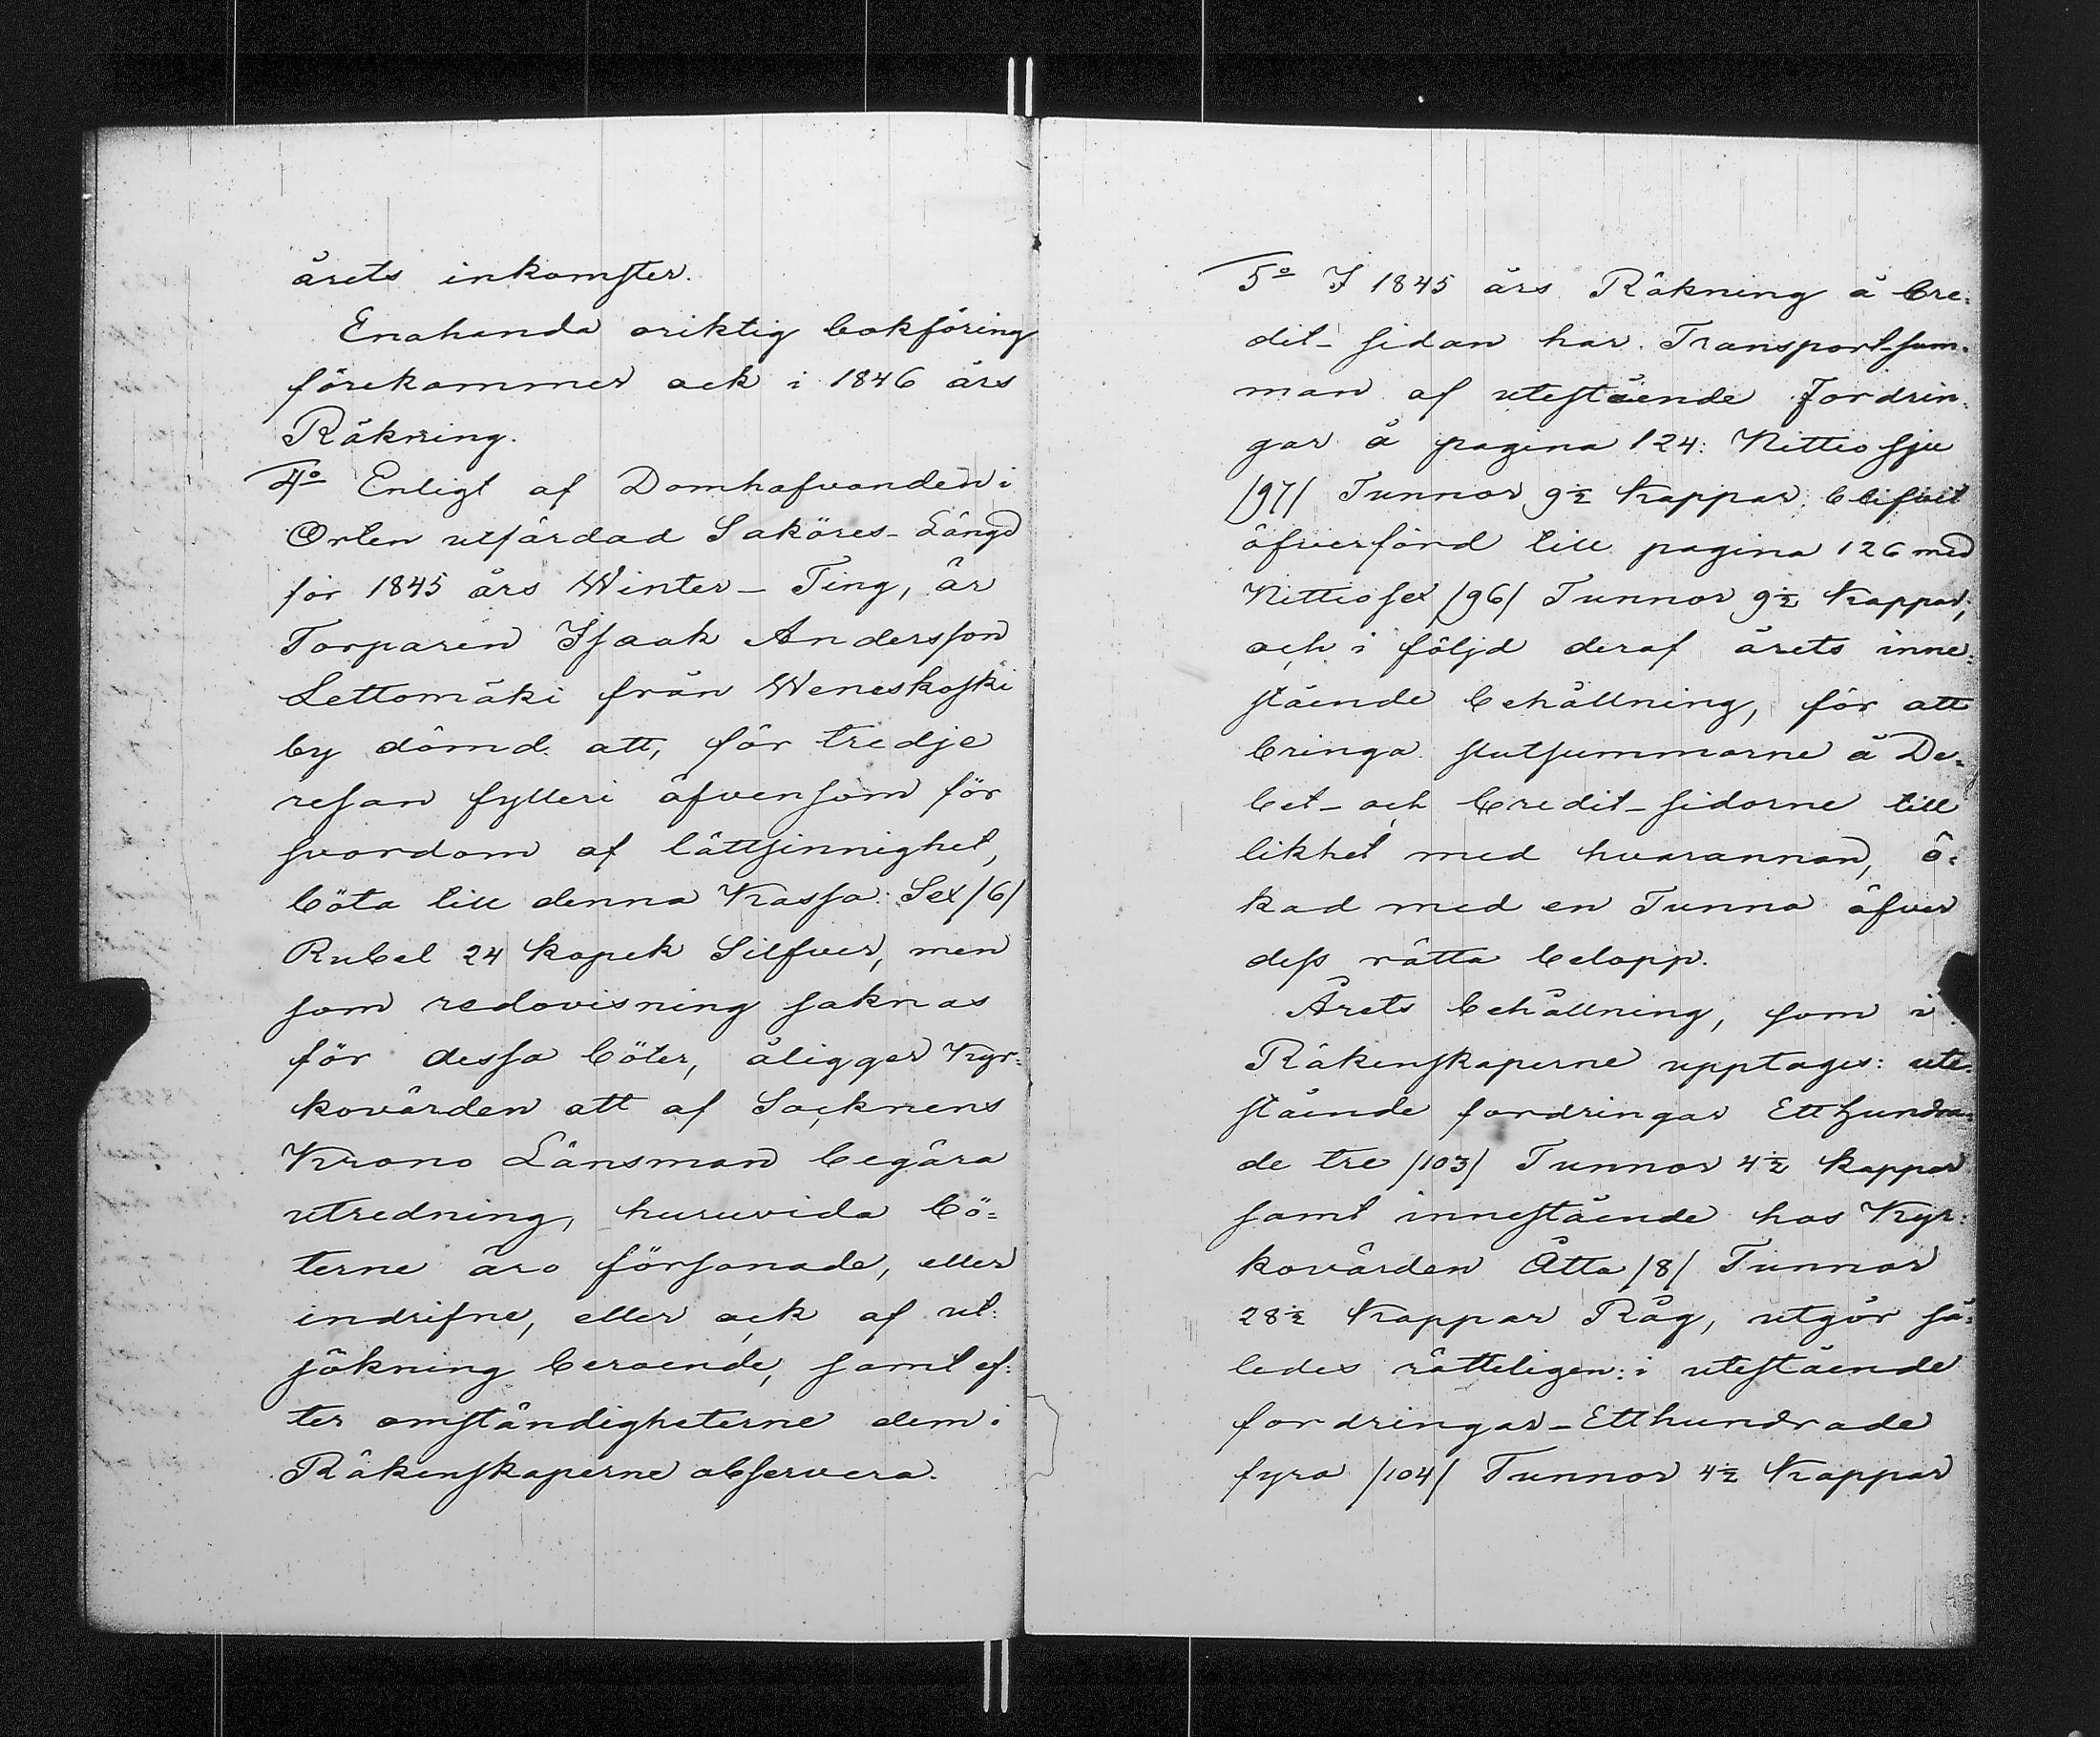 årets inkomster.
Enahanda oriktig bokföring
förekommer ock i 1846 års
Räkning.
4o Enligt af Domhafvanden i
Orten utfärdad Saköres-Längd
för 1845 års Winter-Ting, är
Torparen Isaak Andersson
Lettomäki från Weneskoski
by dömd att, för tredje
resan fylleri äfvensom för
svordom af lättsinnighet,
böta till denna Kassa: Sex /6/
Rubel 24 kopek Silfver, men
som redovisning saknas
för dessa böter, åligger Kyr=
kovärden att af Socknens
Krono Länsman begära
utredning, huruvida bö=
terne äro försonade, eller
indrifne, eller ock af ut=
sökning beroende, samt ef=
ter omständigheterne dem i
Räkenskaperne observera.
5o I 1845 års Räkning å Cre=
dit-sidan har Transport-sum=
man af utestående Fordrin=
gar å pagina 124: Nittiosju
/97/ Tunnor 9½ Kappar, blifvit
öfverförd till pagina 126 med
Nittiosex /96/ Tunnor 9½ Kappar,
och i följd deraf årets inne=
stående behållning, för att
bringa slutsummorne å De=
bet- och Credit-sidorne till
likhet med hvarannan, ö=
kad med en Tunna öfver
dess rätta belopp.
Årets behållning, som i
Räkenskaperne upptages: ute=
stående fordringar Etthundra=
de tre /103/ Tunnor 4½ kappar
samt innestående hos Kyr=
kovärden Åtta /8/ Tunnor
28½ Kappar Råg, utgör så=
ledes rätteligen: i utestående
fordringar-Etthundrade
fyra /104/ Tunnor 4½ Kappar